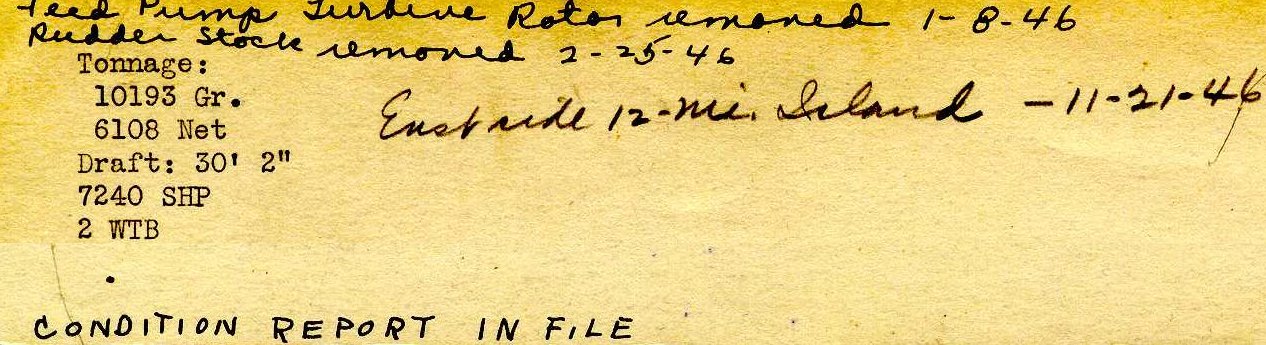 Feed Pump Turbine Rotor removed 1-8-46
Rudder Stock removed 2-25-46
Tonnage:
10193 Gr.
East side 12-Mi. Island - 11-21-46
6108 Net
Draft: 30' 2"
7240 SHP
2 WTB
CONDITION REPORT IN FILE